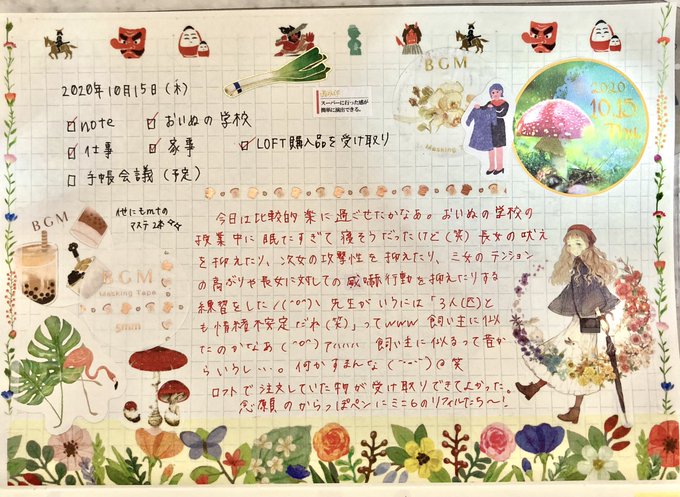 2020年10月15日(木)
note
おいぬの学校
仕事
家事
LOFT購入品を受け取り
手帳会議(予定)
スーパーに行った感が
簡単に演出できる。
BGM
Masking
2020
10.15
Thu.
他にもmtの
マステ2本
BGM
BGM
Masking Tape
5mm
今日は比較的楽に過ごせたかなぁ。おいぬの学校の
授業中に眠たすぎて寝そうだったけど(笑)長女の吠え
を抑えたり、次女の攻撃性を抑えたり、三女のテンション
の高がりや長女に対しての威嚇行動を抑えたりする
練習をした!(^o^)\ 先生がいうには「3人(匹)と
も情緒不安定だね(笑)」ってwww 飼い主に似
たのかなあ(^o^)アハハハ 飼い主に似るって昔か
らいうし…。何かすまんな(˘ー˘)@笑
ロフトで注文していた物が受け取りできてよかった。
念願のからっぽペンにミニ6のリフィルたち〜!